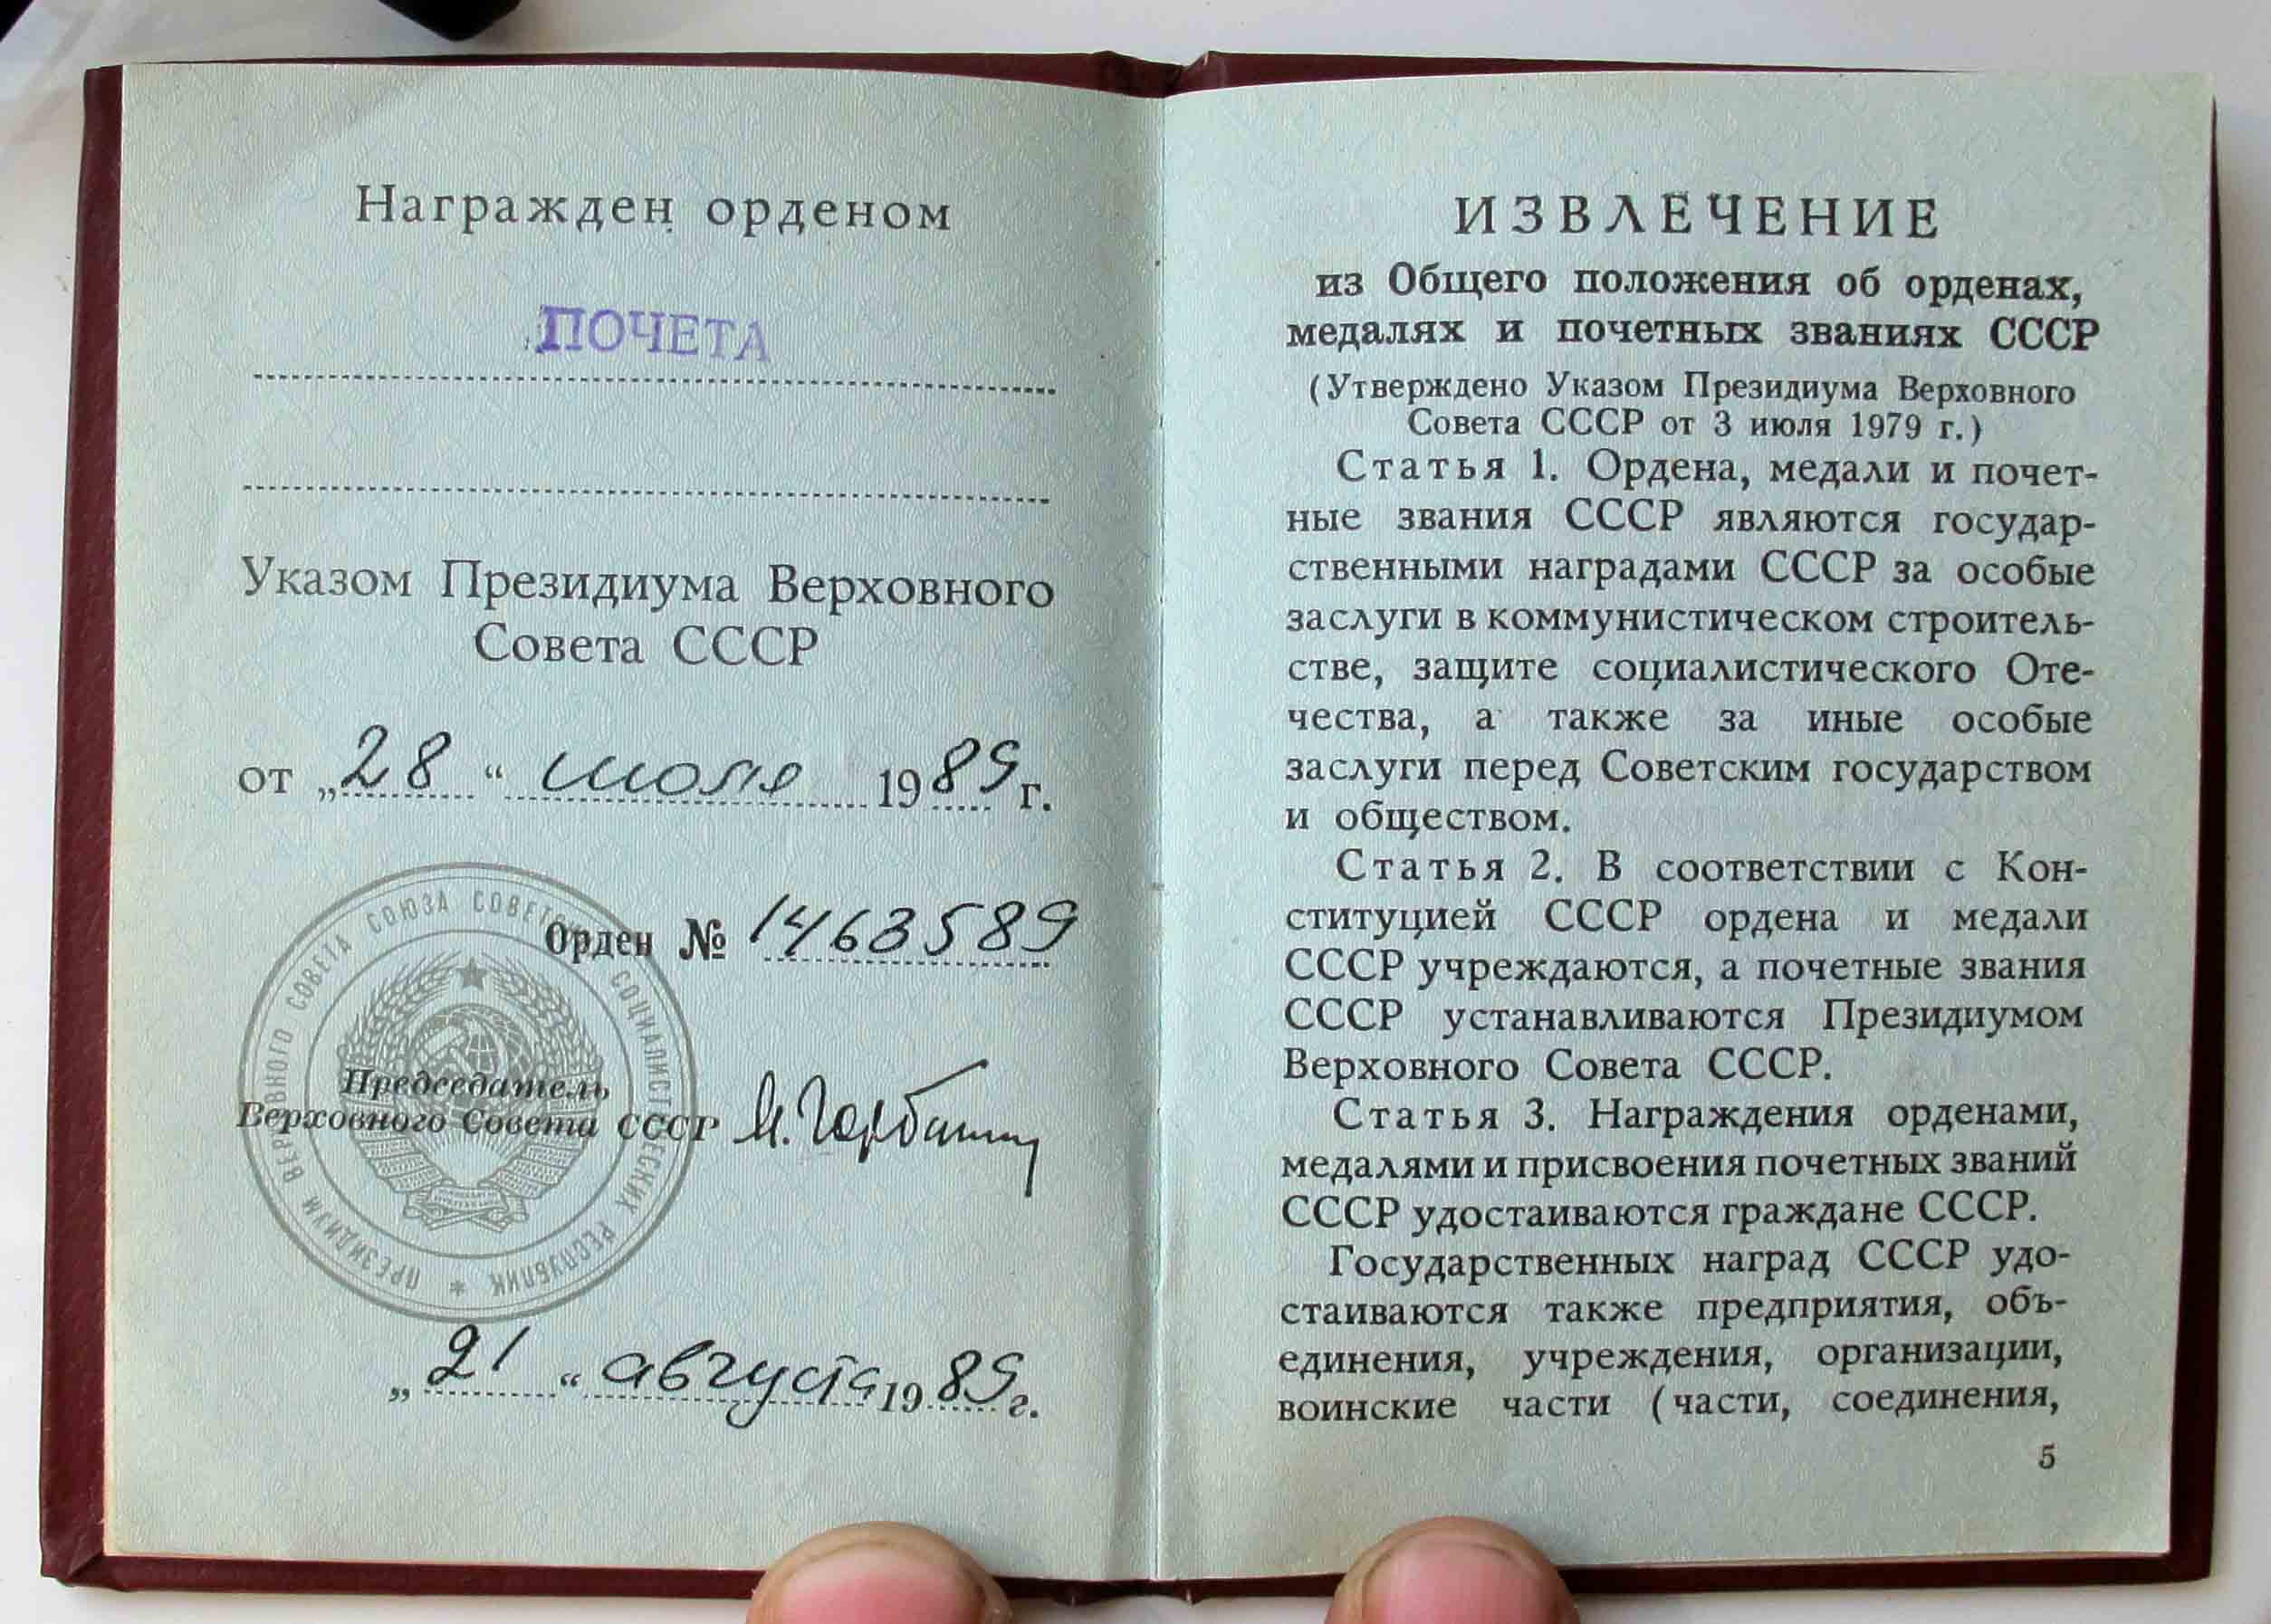 Награжден орденом
ПОЧЕТА
Указом Президиума Верховного
Совета СССР
от „28“ июля 1989 г.
Орден № 1463589
ПРЕЗИДИУМ ВЕРХОВНОГО СОВЕТА СОЮЗА СОВЕТСКИХ СОЦИАЛИСТИЧЕСКИХ РЕСПУБЛИК *
Председатель
Верховного Совета СССР М. Горбачев
„21“ августа 1989 г.
ИЗВЛЕЧЕНИЕ
из Общего положения об орденах,
медалях и почетных званиях СССР
(Утверждено Указом Президиума Верховного
Совета СССР от 3 июля 1979 г.)
Статья 1. Ордена, медали и почет-
ные звания СССР являются государ-
ственными наградами СССР за особые
заслуги в коммунистическом строитель-
стве, защите социалистического Оте-
чества, а также за иные особые
заслуги перед Советским государством
и обществом.
Статья 2. В соответствии с Кон-
ституцией СССР ордена и медали
СССР учреждаются, а почетные звания
СССР устанавливаются Президиумом
Верховного Совета СССР.
Статья 3. Награждения орденами,
медалями и присвоения почетных званий
СССР удостаиваются граждане СССР.
Государственных наград СССР удо-
стаиваются также предприятия, объ-
единения, учреждения, организации,
воинские части (части, соединения,
5